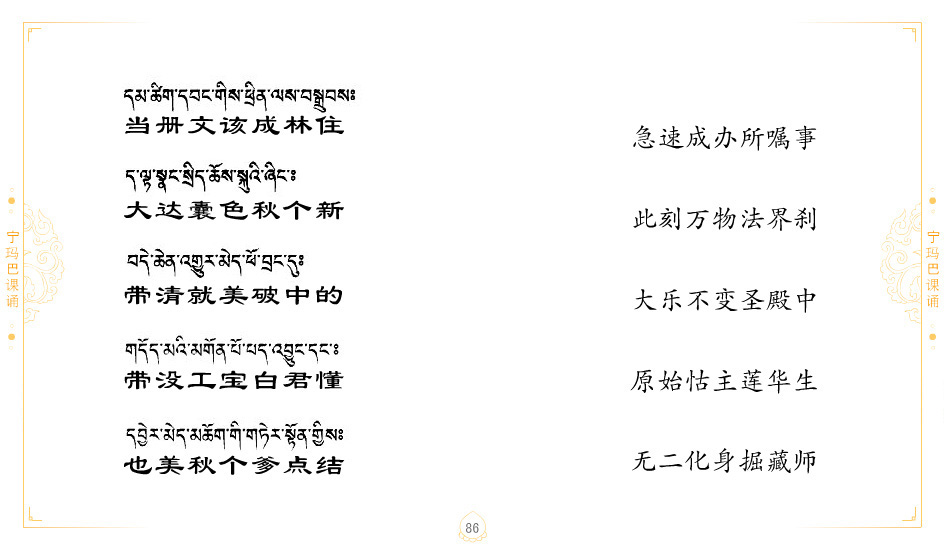 དམ་ཚིག་དབང་གིས་ཕྲིན་ལས་བསྒྲུབས༔
当册文该成林住
ད་ལྟ་སྣང་སྲིད་ཆོས་སྐུའི་ཞིང་༔
大达囊色秋个新
བདེ་ཆེན་འགྱུར་མེད་ཕོ་བྲང་དུ༔
带清就美破中的
གདོད་མའི་མགོན་པོ་པད་འབྱུང་དང་༔
带没工宝白君懂
དབྱེར་མེད་མཆོག་གི་གཏེར་སྟོན་གྱིས༔
也美秋个爹点结
急速成办所嘱事
此刻万物法界刹
大乐不变圣殿中
原始怙主莲华生
无二化身掘藏师
宁玛巴课诵
宁玛巴课诵
86